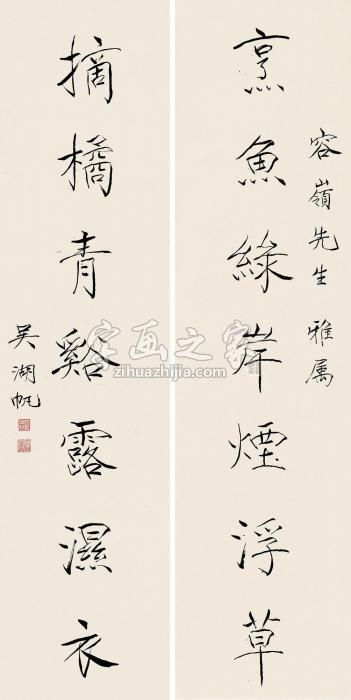 容嶺先生 雅属
烹魚綠岸煙浮草
摘橘青谿露濕衣
吴湖帆
字画之家
zihuazhijia.com